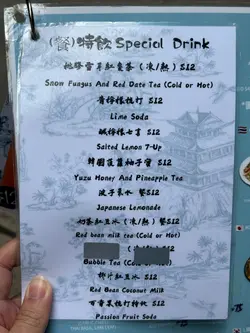 (餐)特飲 Special Drink
桃膠雪耳紅棗茶(凍/熱) $12
Snow Fungus And Red Date Tea (Cold or Hot)
青檸檬梳打 $12
Lime Soda
鹹檸檬七喜 $12
Salted Lemon 7-Up
韓國蜂蜜柚子 $12
Yuzu Honey And Pineapple Tea
波子汽水 餐$12
Japanese Lemonade
奶茶紅豆冰(凍/熱)餐$12
Red bean milk tea (Cold or Hot)
(凍/熱) $12
Bubble Tea (Cold or Hot)
椰汁紅豆冰 $12
Red Bean Coconut Milk
百香果梳打特飲 $12
Passion Fruit Soda